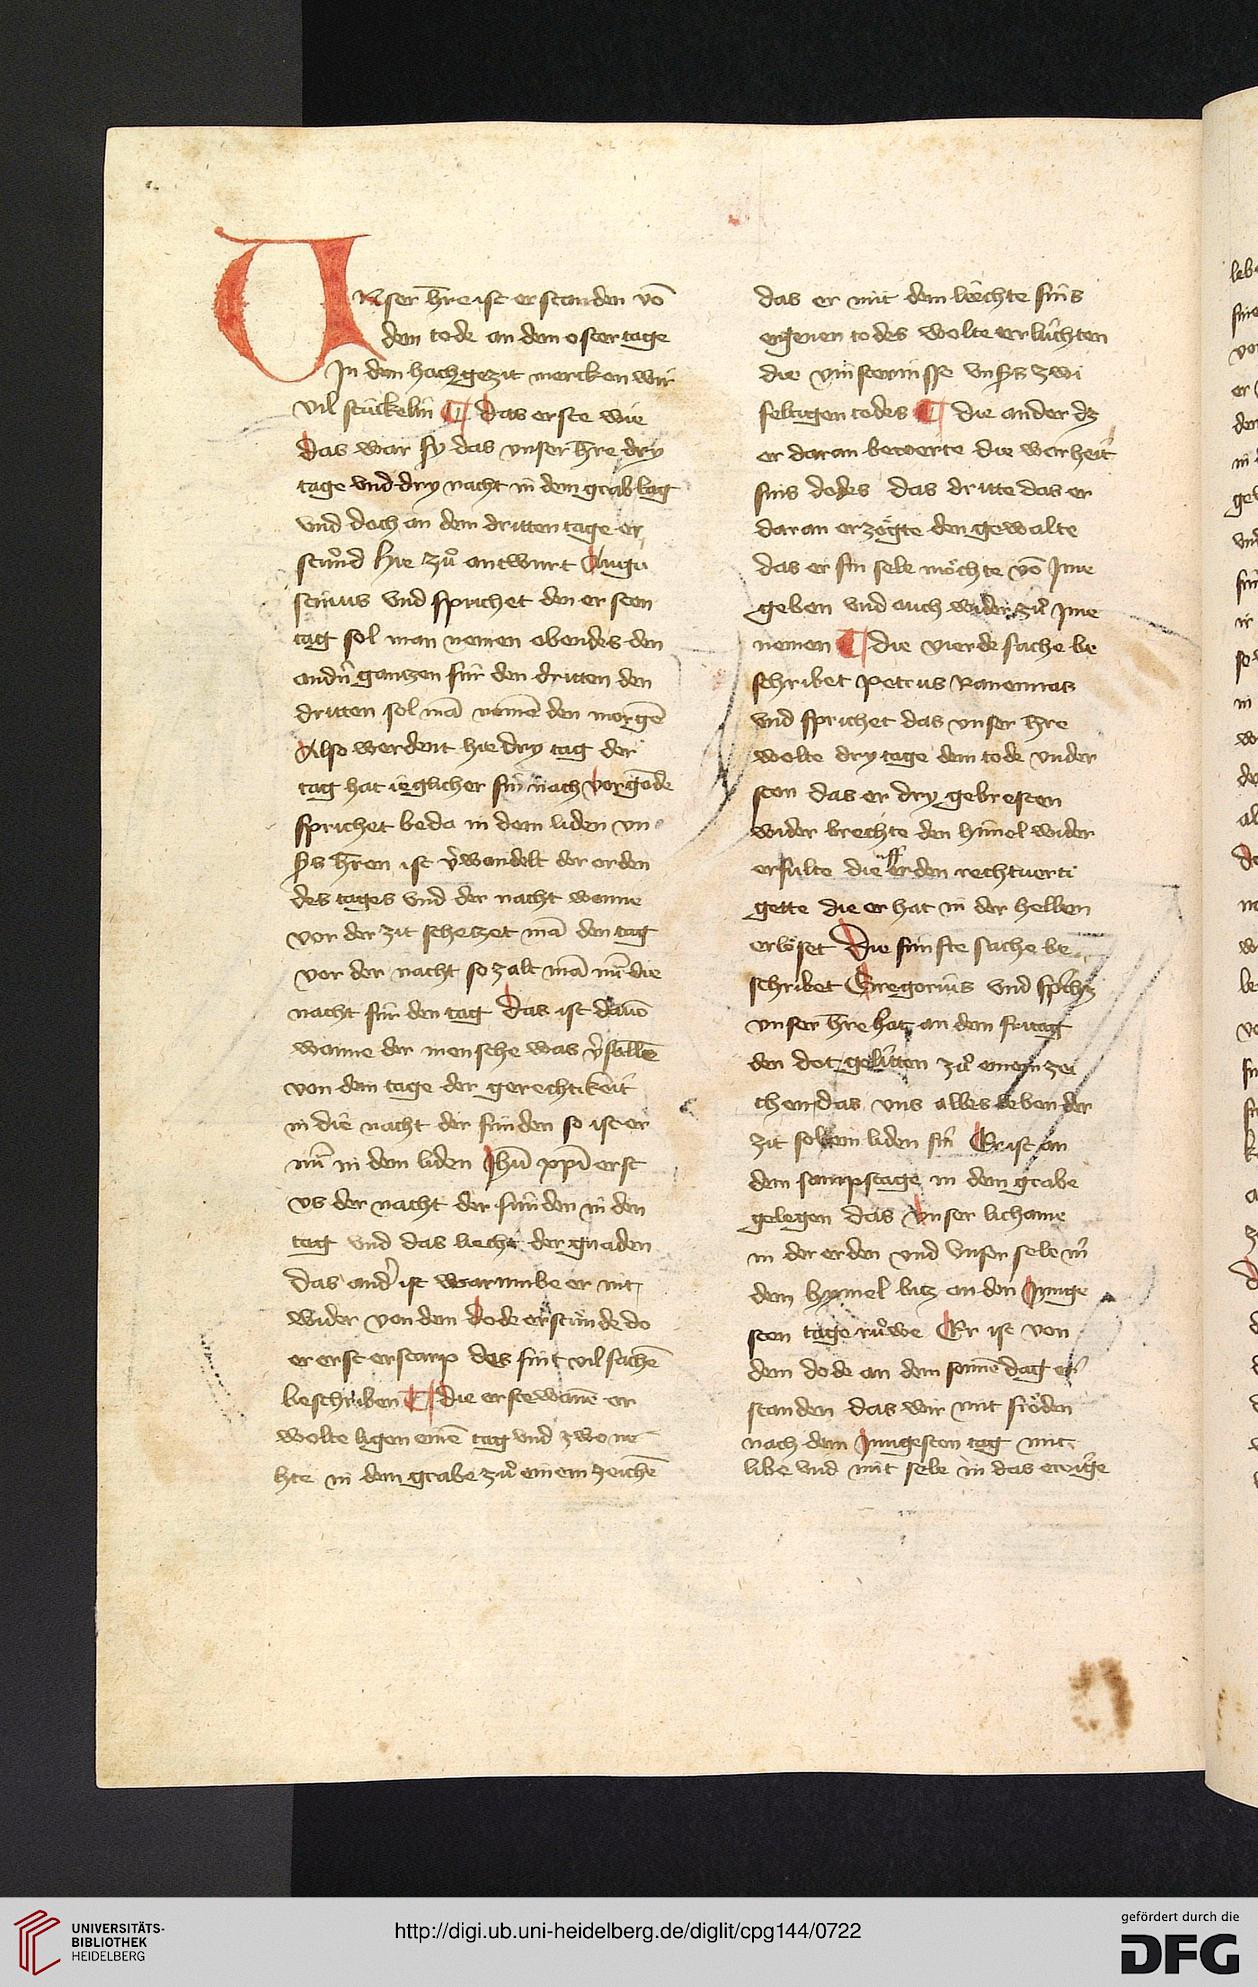 UNser hre ist erstanden vō
dem tode an dem ostertage
In dem hochgezit mercken wir
vil stúckelin ¶ das erste wie
das war sy das vnser hre dry
tage vnd dry nacht in dem grab lag
vnd doch an dem dritten tage er
stůnd hie zů antwurt Augu
stinus vnd sprichet den ersten
tag sol man nemen obendes den
andn̄ gantzen fúr den dritten den
dritten sol mā nemē den morgē
Also werdent hie dry tag der
tag hat ieglicher sin nach vorgōde
sprichet beda in dem liden vn
sʼs hren ist v̉wandelt der orden
des tages vnd der nacht wenne
vor der zit schetzet mā den tag
vor der nacht so zalt mā nū die
nacht fúr den tag Das ist dauō
wanne der mensche was v̉fallē
von dem tage der gerechtikeit
in die nacht der súnden so ist er
nū in dem liden Jhū xpī erst
vs der nacht der súnden in den
tag vnd das liecht der gnaden
Das and̉ ist warumbe er nit
wider von dem dode erstúnde do
er erst erstarp des sint vil sachē
beschriben ¶ die erste wanē er
wolte ligen einē tag vnd zwo ne
hte in dem grabe zů einem zeichē
das er mit dem liechte sins
eigenen todes wolte erlúchten
die vinsternisse vnsʼs zwi
feltigen todes ¶ die ander dz
er daran bewerte die worheit
sins dodes das dritte das er
daran erzögte den gewalte
das er sin sele möchte vō Jme
geben vnd ouch wider zů Jme
nemen ¶ die vierde sache be
schribet petrus Rauennas
vnd sprichet das vnser hre
wolte dry tage dem tode vnder
ston das er dry gebresten
wider brechte den himel wider
erfulte die erden rechtuerti
gette die er hat in der hellen
erlöset Die funfte sache be
schribet Gregorius vnd sprichz
vnser hre hat an dem fritag
den dot gelitten zů einem zei
chen das vns alles leben der
zit sol ein liden sin Er ist an
dem sampstage in dem grabe
gelegen das vnser lichame
in der erden vnd vnser sele in
dem hymel bitz an den Junge
sten tage růwe Er ist von
dem dode an dem sonnē dag er
standen das wir mit fröden
nach dem Jungesten tag mit
libe vnd mit sele in das ewige
UNIVERSITÄTS-
BIBLIOTHEK
HEIDELBERG
http://digi.ub.uni-heidelberg.de/diglit/cpg144/0722
gefördert durch die
DFG